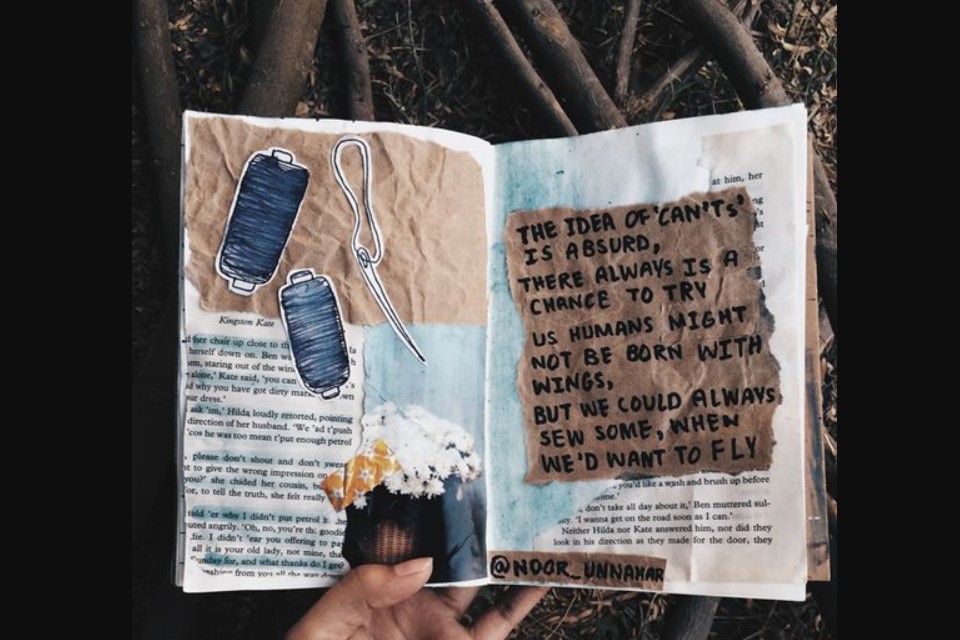 Kingston Kate
her chair up close to th
herself down on. Ben w
em, staring out of the win
alone,' Kate said, 'you can
d why you have got dirty mar
ur dress.'
ask 'im,' Hilda loudly retorted, pointing
direction of her husband. 'We 'ad t'push
'cos he was too mean t'put enough petrol
please don't shout and don't swea
nt to give the wrong impression on
you?' she chided her cousin, bu
for, to tell the truth, she felt really
told 'er why I didn't put petrol i
uted angrily. 'Oh, no, you're the goodie
I didn't 'ear you offering to pay
all it is your old lady, not mine, tha
Sunday for, and what thanks do I get?
from you all the way
at him, her
THE IDEA OF 'CAN'Ts'
IS ABSURD,
THERE ALWAYS IS A
CHANCE TO TRY
US HUMANS MIGHT
NOT BE BORN WITH
WINGS,
BUT WE COULD ALWAYS
SEW SOME, WHEN
WE'D WANT TO FLY
you'd like a wash and brush up before
ome.'
don't take all day about it,' Ben muttered sul-
'I wanna get on the road soon as I can.'
Neither Hilda nor Kate answered him, nor did they
look in his direction as they made for the door, they
@NOOR_UNNAHAR